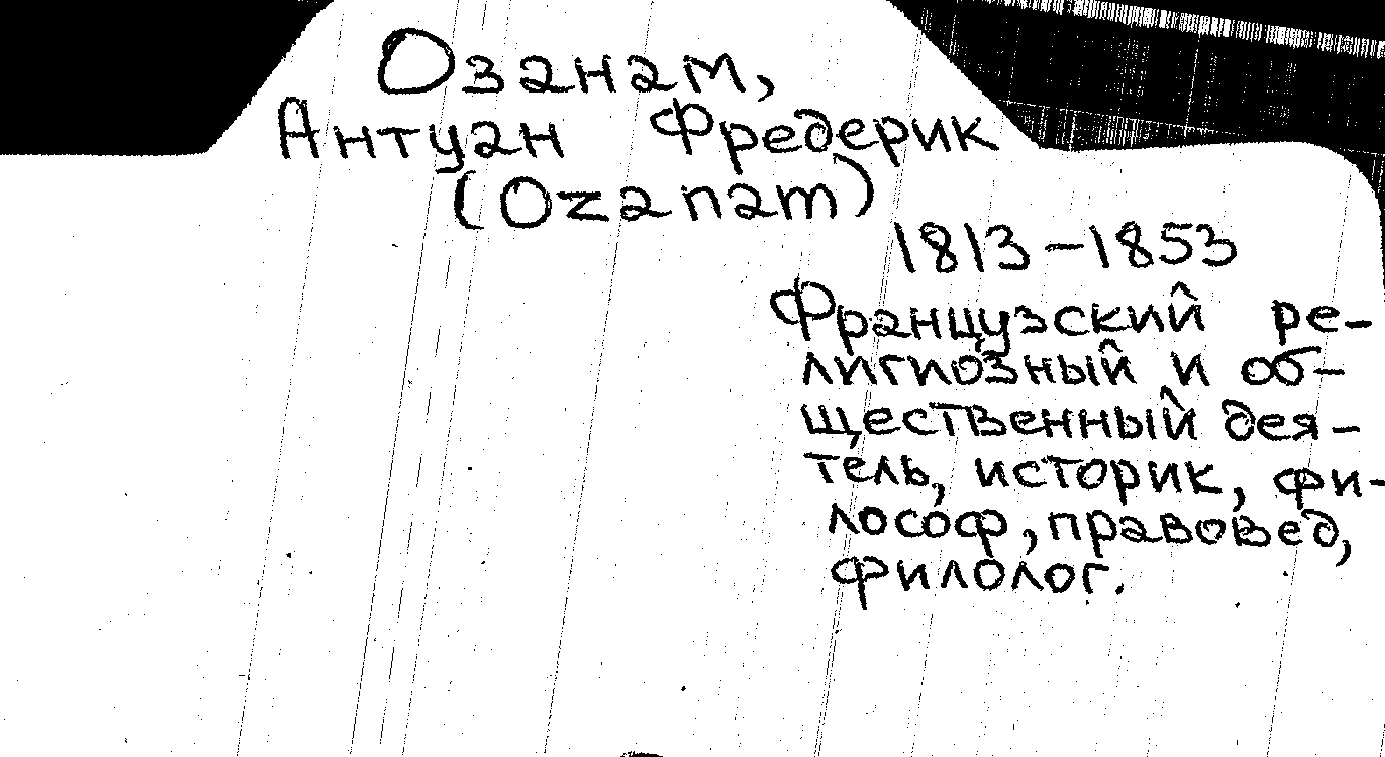 Озанам,
Антуан Фредерик
(Ozanam)
1813-1853
Французский ре-
лигиозный и об-
щественный дея-
тель, историк, фи-
лософ, правовед,
филолог.